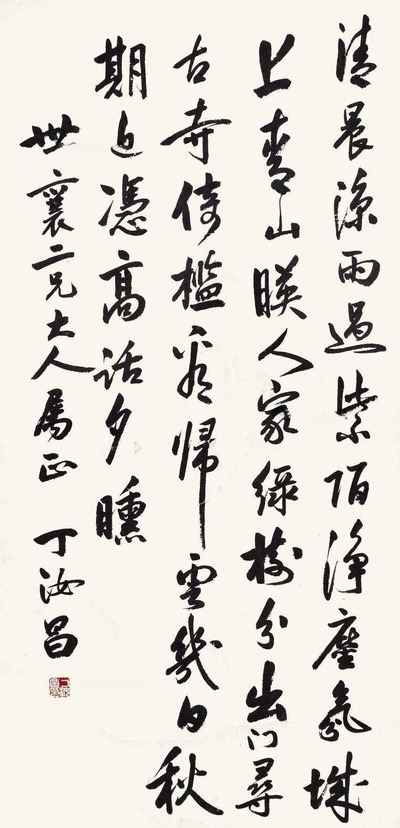 清晨涼雨過紫陌淨塵氛城
上青山暎人家綠樹分出門尋
古寺倚檻看歸雲幾日秋
期近憑高話夕曛
世襄二兄大人属正 丁汝昌